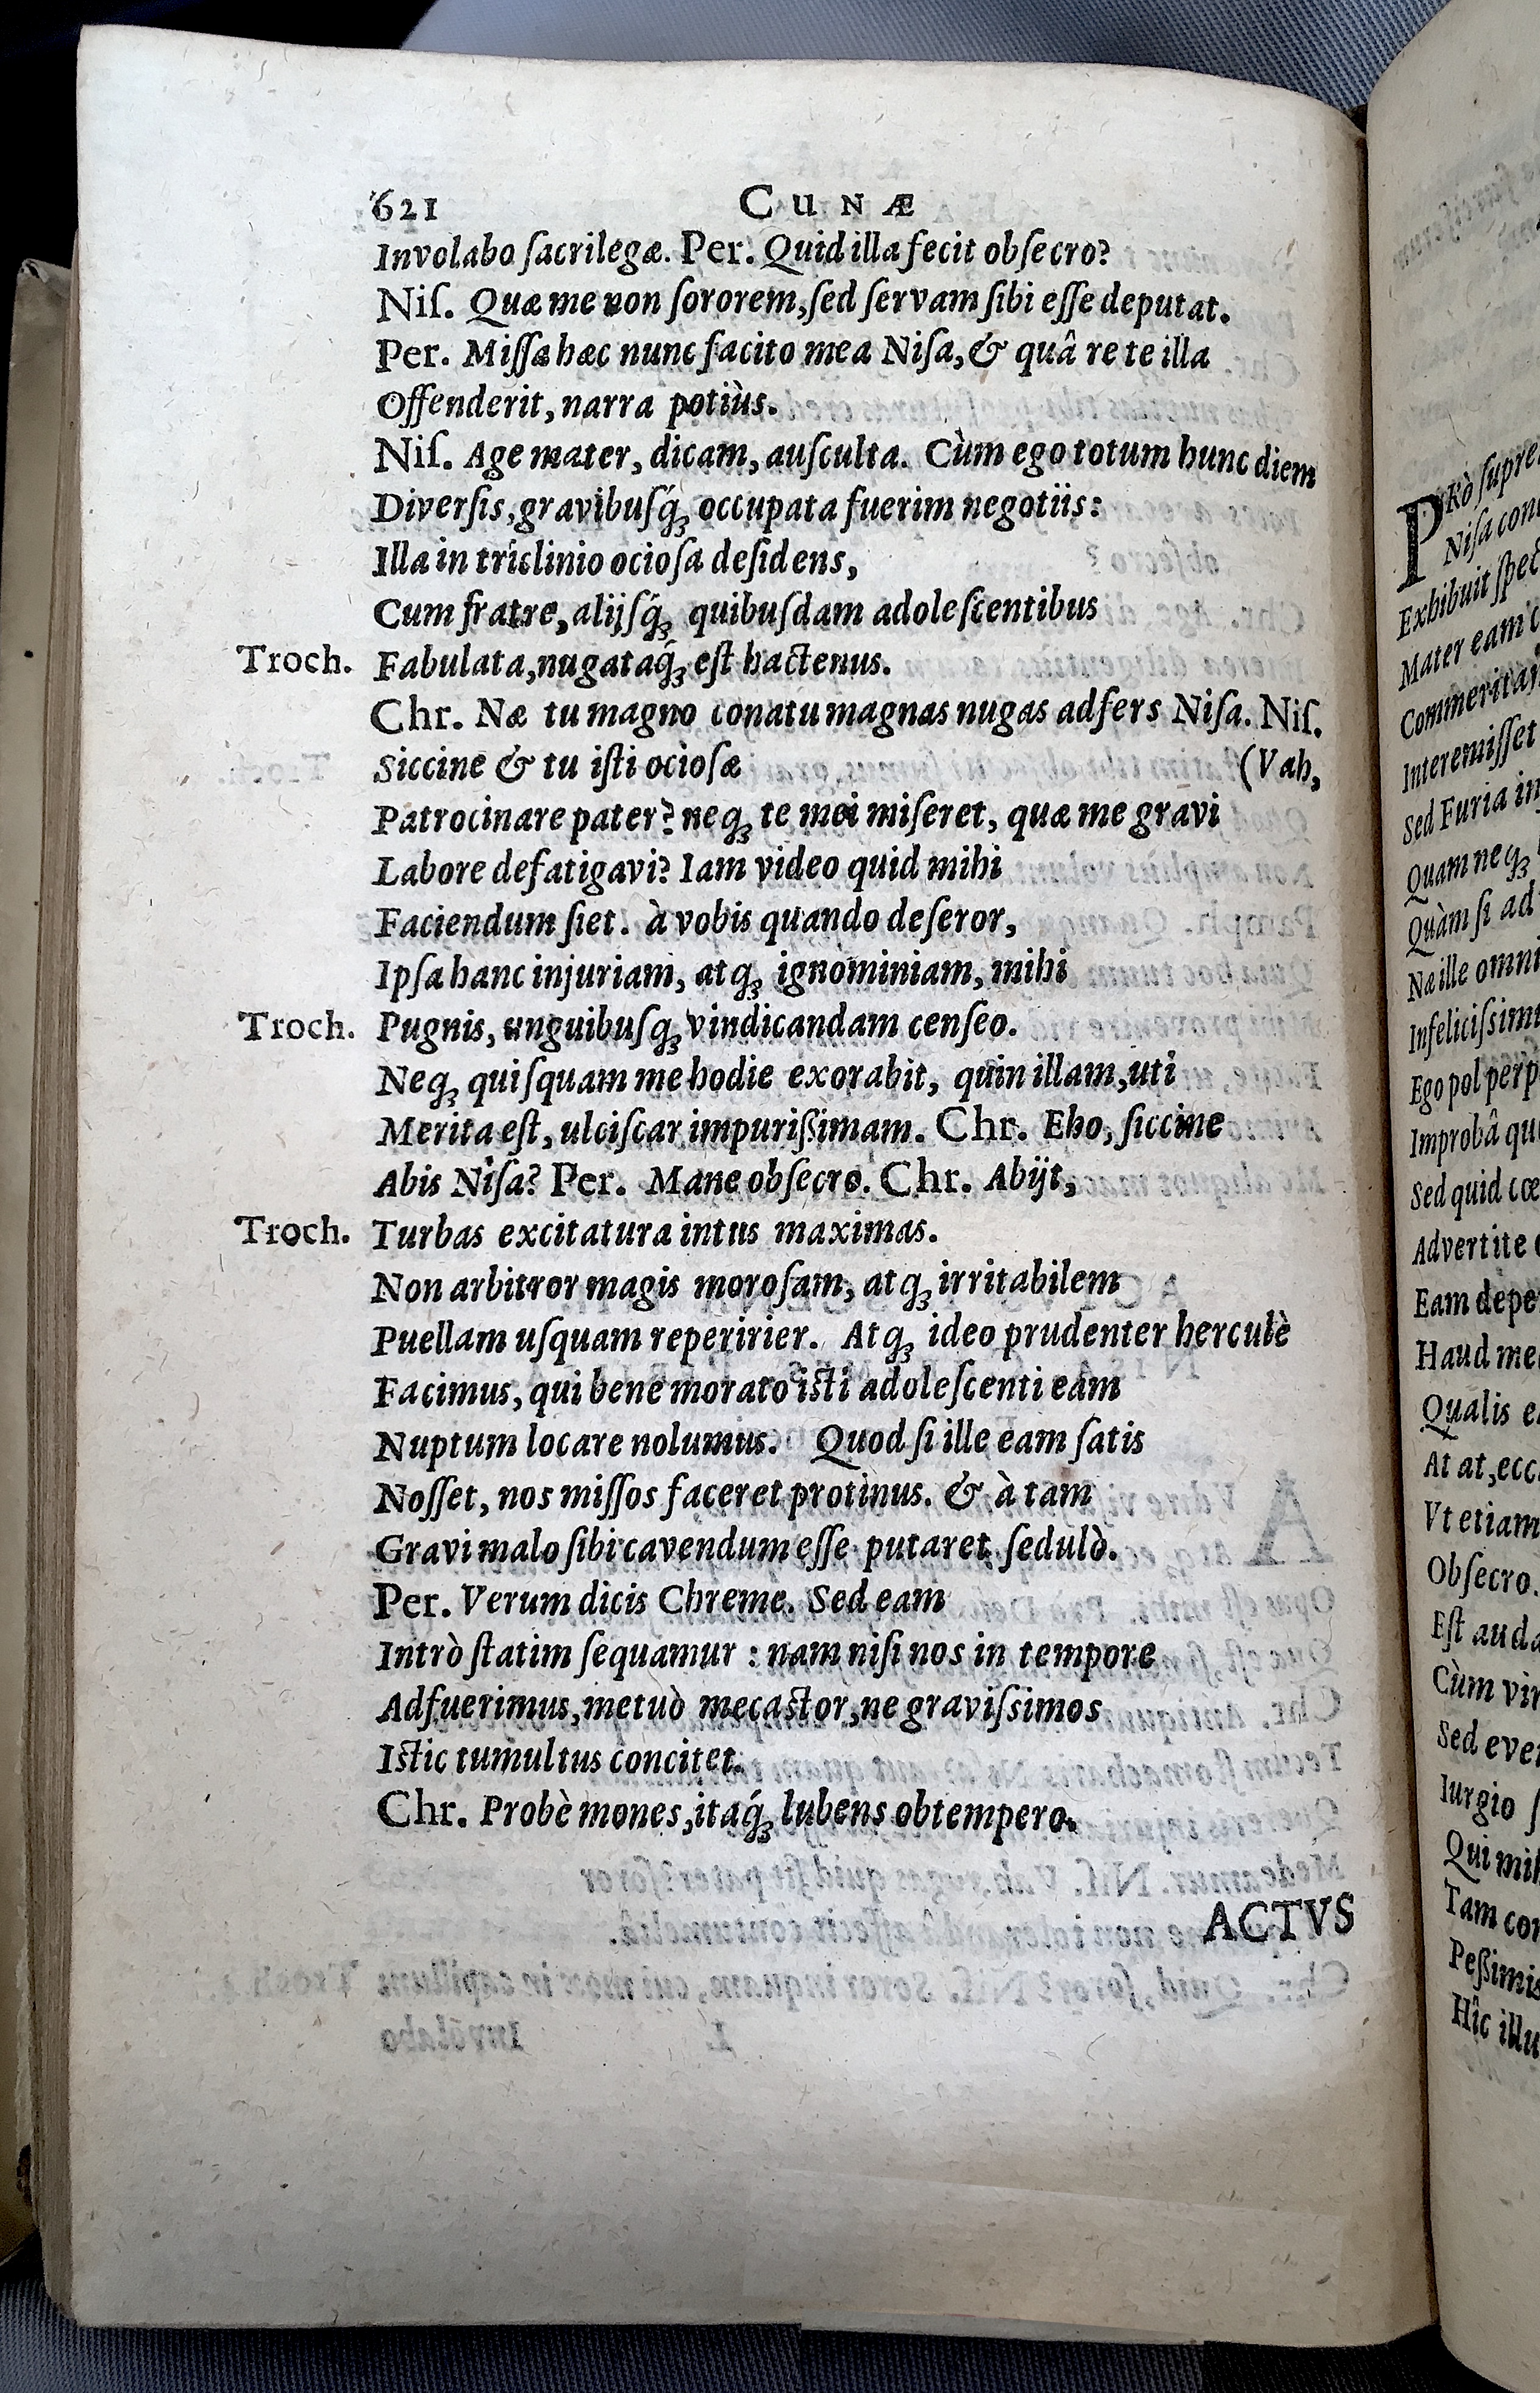 621 CUNÆ
Involabo ſacrilegæ. Per. Quid illa fecit obſecro?
Niſ. Quæ me non ſororem, ſed ſervam ſibi eſſe deputat.
Per. Miſſa hæc nunc facito mea Niſa, & quâ re te illa
Offenderit, narra potiùs.
Niſ. Age mater, dicam, auſculta. Cùm ego totum hunc diem
Diverſis, gravibuſq́ꝫ occupata fuerim negotiis:
Illa in triclinio ocioſa deſidens,
Cum fratre, alijſq́ꝫ quibuſdam adoleſcentibus
Troch. Fabulata, nugataq́ꝫ eſt hactenus.
Chr. Næ tu magno conatu magnas nugas adfers Niſa. Niſ.
Siccine & tu iſti ocioſæ (Vah,
Patrocinare pater? neqꝫ te mei miſeret, quæ me gravi
Labore defatigavi? Iam video quid mihi
Faciendum ſiet. à vobis quando deſeror,
Ipſa hanc injuriam, atqꝫ ignominiam, mihi
Troch. Pugnis, unguibuſqꝫ vindicandam cenſeo.
Neqꝫ quiſquam me hodie exorabit, quin illam, uti
Merita eſt, ulciſcar impurißimam. Chr. Eho, ſiccine
Abis Niſa? Per. Mane obſecro. Chr. Abijt,
Troch. Turbas excitatura intus maximas.
Non arbitror magis moroſam, atqꝫ irritabilem
Puellam uſquam reperirier. Atqꝫ ideo prudenter herculè
Facimus, qui bene morato iſti adoleſcenti eam
Nuptum locare nolumus. Quod ſi ille eam ſatis
Noſſet, nos miſſos faceret protinus. & à tam
Gravi malo ſibi cavendum eſſe putaret ſedulò.
Per. Verum dicis Chreme. Sed eam
Intrò ſtatim ſequamur : nam niſi nos in tempore
Adfuerimus, metuò mecaſtor, ne graviſſimos
Iſtic tumultus concitet.
Chr. Probè mones, itaq́ꝫ lubens obtempero.
ACTVS
PRò
Niſa
Exhibuit
Mater eam
Interemiſſet
Sed Furia
Quam neqꝫ
Quàm ſi ad
Næ ille
Ego pol
Improbâ
Sed quid
Advertite
Eam
Haud
Qualis
At at,
Vt etiam
Obſecro.
Eſt
Cùm
Sed
Iurgio
Qui
Tam
Hîc